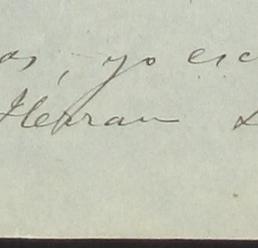 os, yo esc
Herran